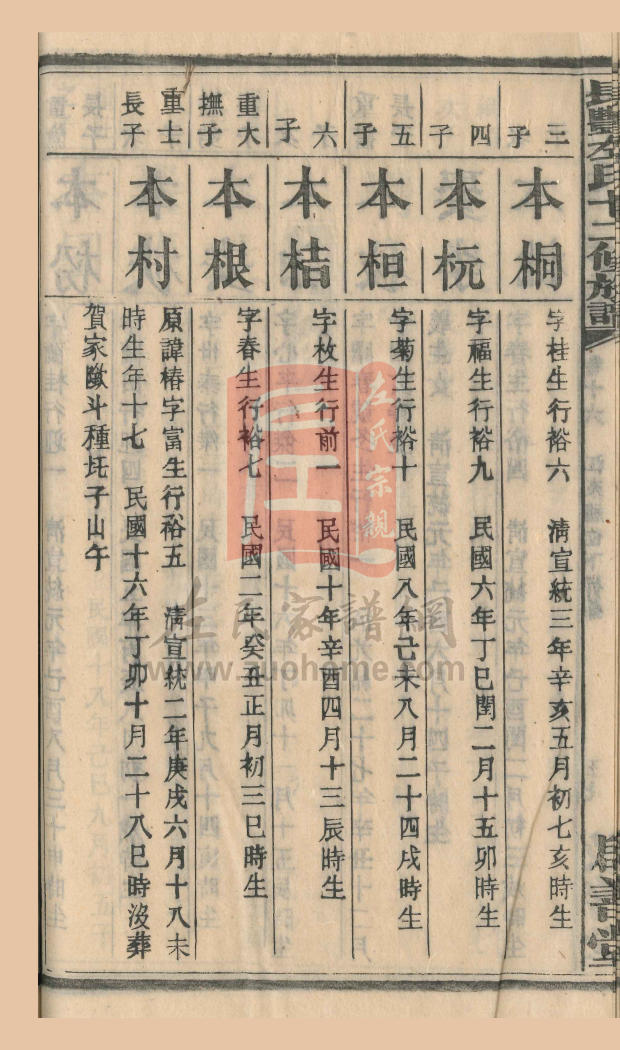 長豐左氏十二修族譜
三子
本桐
字桂生行裕六　清宣統三年辛亥五月初七亥時生
四子
本杬
字福生行裕九　民國六年丁巳閏二月十五卯時生
五子
本桓
字菊生行裕十　民國八年己未八月二十四戌時生
六子
本桔
字枚生行前一　民國十年辛酉四月十三辰時生
重大撫子
本根
字春生行裕七　民國二年癸丑正月初三巳時生
重士長子
本村
原諱椿字富生行裕五　清宣統二年庚戌六月十八未
時生年十七　民國十六年丁卯十月二十八巳時沒葬
賀家斗種圫子山午
左氏宗親
左氏家譜網
www.zuohome.com